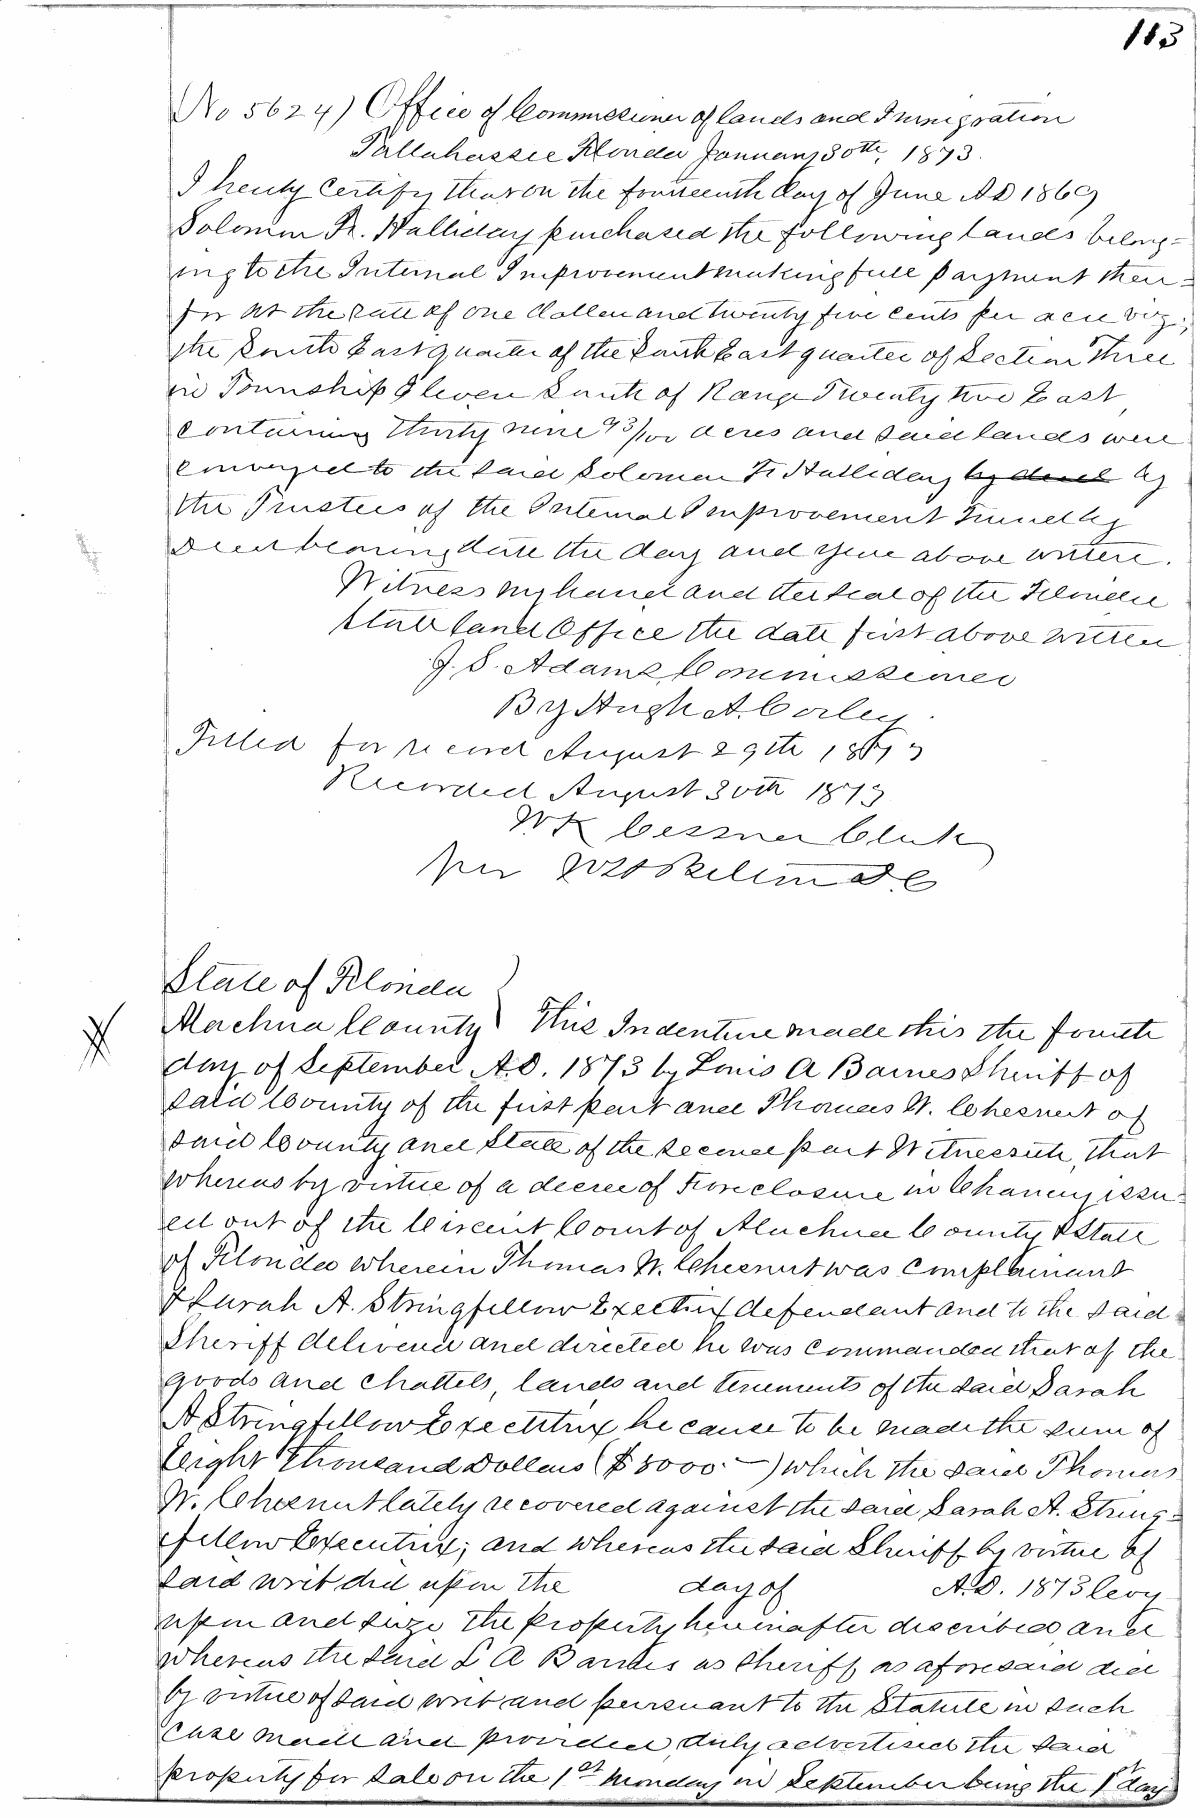 113
(No 5624) Office of Commissioner of Lands and Immigration
Tallahassee Florida January 30th, 1873.
I hereby certify that on the fourteenth day of June A D 1869
Solomon F. Halliday purchased the following lands belong=
ing to the Internal Improvement making full payment there=
for at the rate of one dollar and twenty five cents per acre viz;
the South East quarter of the South East quarter of Section Three
in Township Eleven South of Range Twenty two East,
containing thirty nine 93/100 acres and said lands were
conveyed to the said Solomon F. Halliday by deed by
the Trustees of the Internal Improvement Fund by
deed bearing date the day and year above written.
Witness my hand and the seal of the Florida
State Land Office the date first above written
J. S. Adams, Commissioner
By Hugh A. Corley.
Filled for record August 29th 1873
Recorded August 30th 1873
W K Cessna Clerk
per D. C
State of Florida
Alachua County } This Indenture made this the fourth
day of September A.D. 1873 by Louis A Barnes Sheriff of
said County of the first part and Thomas W. Chesnut of
said County and State of the second part Witnesseth, that
whereas by virtue of a decree of Foreclosure in Chancery issu=
ed out of the Circuit Court of Alachua County & State
of Florida wherein Thomas W. Chesnut was complainant
& Sarah A. Stringfellow Exectrix defendant and to the said
Sheriff delivered and directed he was commanded that of the
goods and chattels, lands and tenements of the said Sarah
A Stringfellow Exectitrix he cause to be made the sum of
Eight Thousand Dollars ($8000.—) which the said Thomas
W. Chesnut lately recovered against the said Sarah A. String=
fellow Executrix; and whereas the said Sheriff by virtue of
said writ did upon the day of A.D. 1873 levy
upon and seize the property hereinafter described and
whereas the said L A Barnes as Sheriff as aforesaid did
by virtue of said writ and pursuant to the Statute in such
case made and provided, duly advertised the said
property for sale on the 1st Monday in September being the 1st day